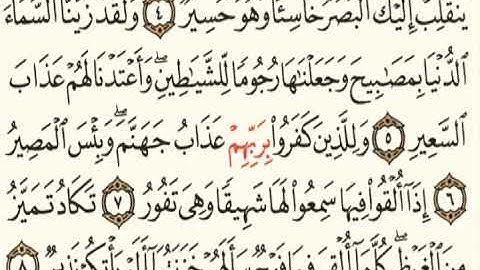 يَنقَلِبْ إِلَيْكَ ٱلْبَصَرُ خَاسِئًا وَهُوَ حَسِيرٌ ٤ وَلَقَدْ زَيَّنَّا ٱلسَّمَآءَ
ٱلدُّنْيَا بِمَصَٰبِيحَ وَجَعَلْنَٰهَا رُجُومًا لِّلشَّيَٰطِينِ ۖ وَأَعْتَدْنَا لَهُمْ عَذَابَ
ٱلسَّعِيرِ ٥ وَلِلَّذِينَ كَفَرُوا۟ بِرَبِّهِمْ عَذَابُ جَهَنَّمَ ۖ وَبِئْسَ ٱلْمَصِيرُ
٦ إِذَآ أُلْقُوا۟ فِيهَا سَمِعُوا۟ لَهَا شَهِيقًا وَهِىَ تَفُورُ ٧ تَكَادُ تَمَيَّزُ
مِنَ ٱلْغَيْظِ ۖ كُلَّمَآ أُلْقِىَ فِيهَا فَوْجٌ سَأَلَهُمْ خَزَنَتُهَآ أَلَمْ يَأْتِكُمْ نَذِيرٌ ٨